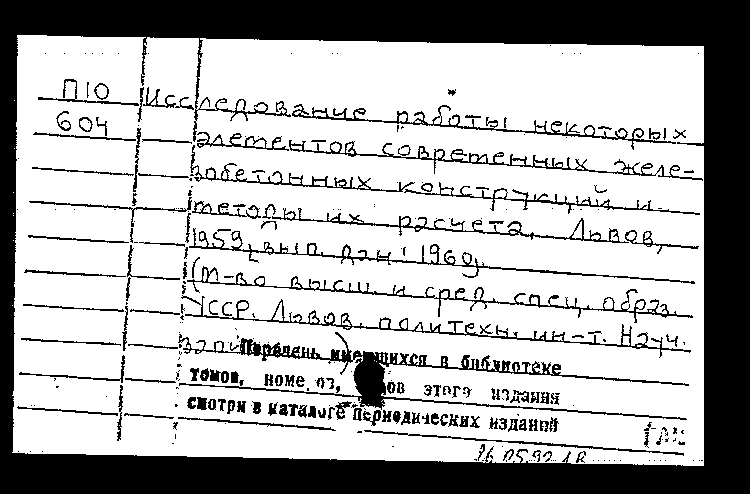 П10 Исследование работы некоторых
604 элементов современных желе-
зобетонных конструкций и
методы их расчета. Львов,
1959, [вып. дан: 1960].
(М-во высш. и сред. спец. образ.
УССР. Львов. политехн. ин-т. Науч.
зап.)
Перечень имеющихся в библиотеке
томов, этого издания
смотри в каталоге Периодических изданий